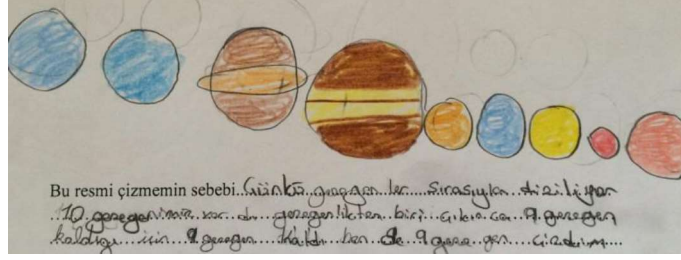 Bu resmi çizmemin sebebi..Çünkü gezegenler sırasıyla diziliyor
10 gezegenimiz var dı gezegenlikten biri çıkınca 9 gezegen
kaldığı için 9 gezegen kaldı ben de 9 gezegen çizdim